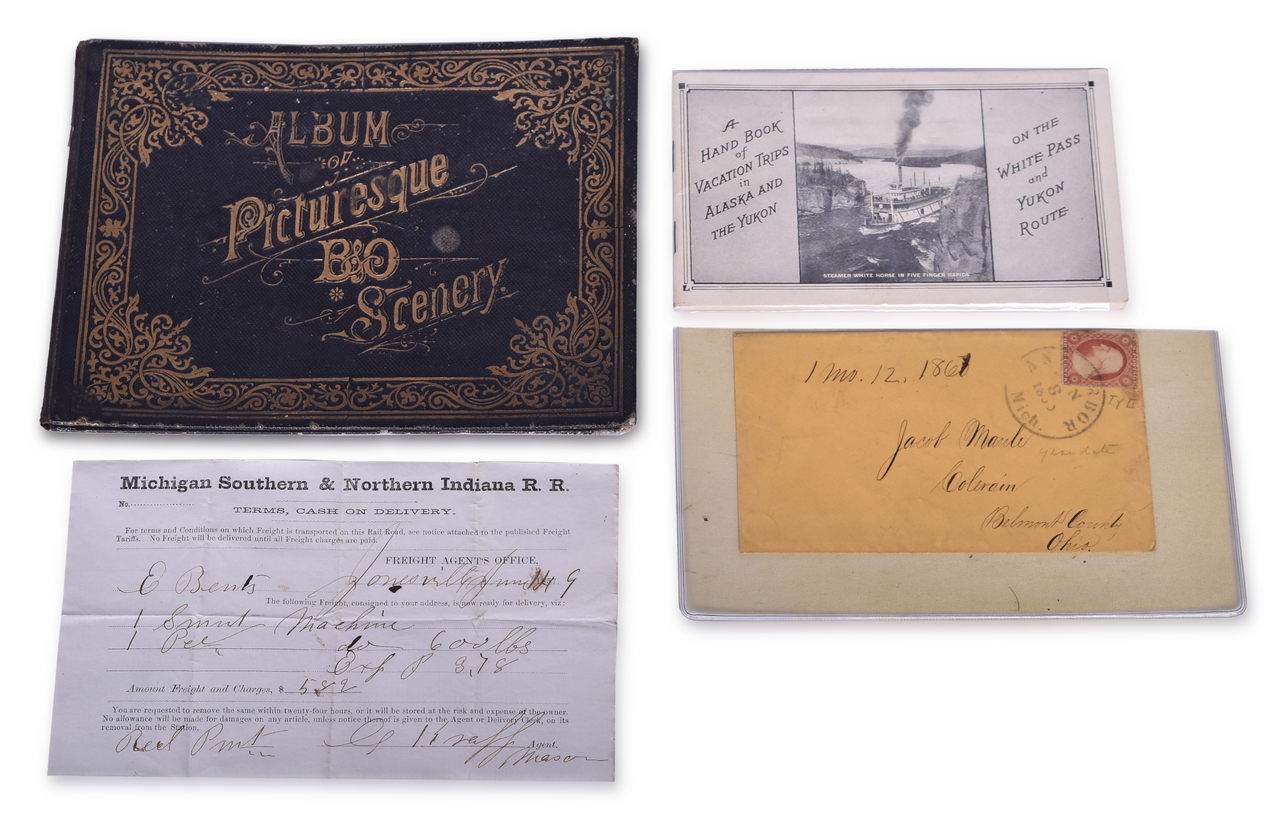 ALBUM
OF
Picturesque
B&O
Scenery.
A
HAND BOOK
of
VACATION TRIPS
in
ALASKA AND
THE YUKON
STEAMER WHITE HORSE IN FIVE FINGER RAPIDS
ON THE
WHITE PASS
and
YUKON
ROUTE
Michigan Southern & Northern Indiana R. R.
No.
TERMS, CASH ON DELIVERY.
For terms and Conditions on which Freight is transported on this Rail Road, see notice attached to the published Freight
Tariffs. No Freight will be delivered until all Freight charges are paid.
FREIGHT AGENT'S OFFICE,
E Bents Jonesville June 14 9
The following Freight, consigned to your address, is now ready for delivery, viz:
1 Smut Machine
1 do 600 lbs
3,78
Amount Freight and Charges, $ 582
You are requested to remove the same within twenty-four hours, or it will be stored at the risk and expense of the owner.
No allowance will be made for damages on any article, unless notice thereof is given to the Agent or Delivery Clerk, on its
removal from the Station.
Recd Pmt Agent.
Mason
1 Mo. 12, 1861
ANN ARBOR
Mich.
Ty II
year date
Jacob Maule
Colerain
Belmont County
Ohio.